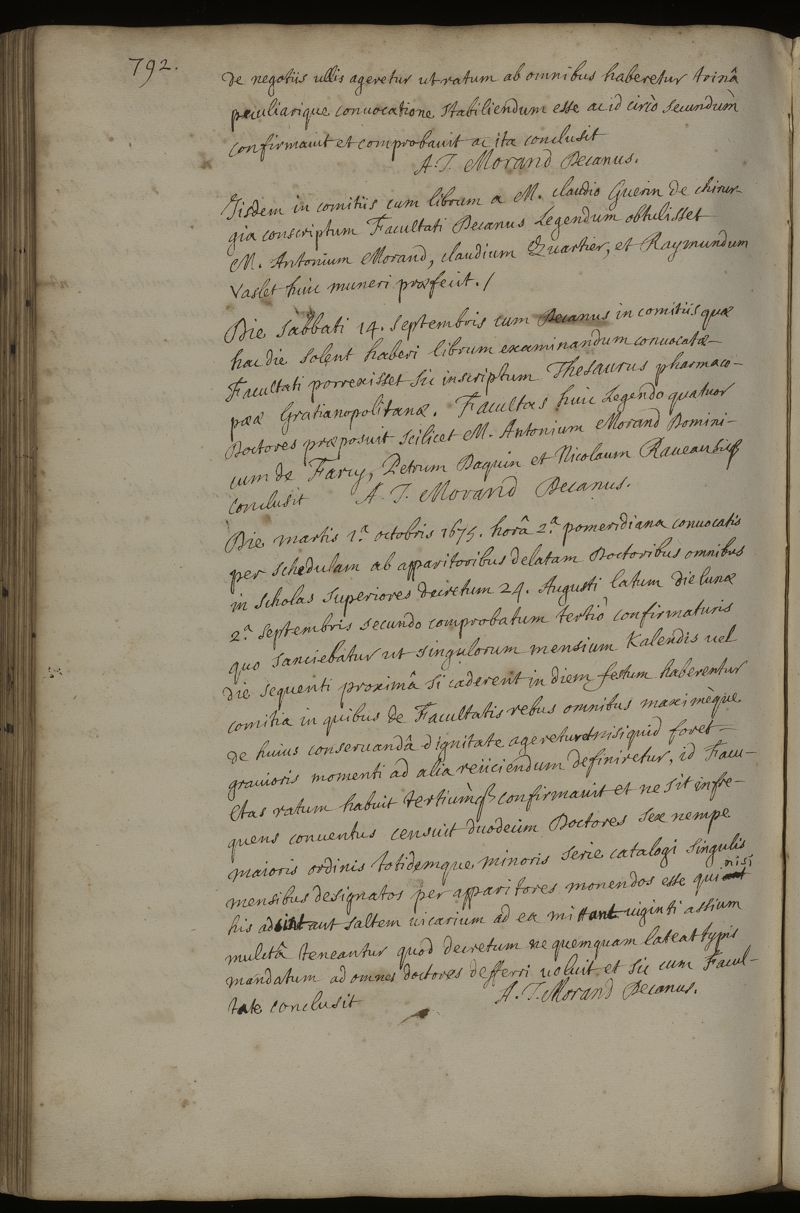 792.
de negotiis ullis ageretur ut ratum ab omnibus haberetur trinâ
peculiarique convocatione stabiliendum esse ac id circò secundùm
confirmavit et comprobavit ac ita conclusit
A. J. Morand Decanus.
Iisdem in comitiis cum librum a M. claudio Guerin de chirur-
gia conscriptum Facultati Decanus Legendum obtulisset
M. Antonium Morand, claudium Quartier, et Raymundum
Vaslet huic muneri præfecit. /
Die sabbati 14. septembris cum Decanus in comitiis quæ
hac die solent haberi librum examinandum convocatæ
Facultati porrexisset sic inscriptum Thesaurus pharmaco-
pææ Gratianopolitanæ. Facultas huic Legendo quatuor
Doctores præposuit scilicet M. Antonium Morand Domini-
cum de Farcy, Petrum Paquin et Nicolaum
conclusit A. J. Morand Decanus.
Die martis 1.ª octobris 1675. horâ 2.ª pomeridiana convocatis
per schedulam ab apparitoribus delatam Doctoribus omnibus
in scholas superiores decretum 24. Augusti latum die lunæ
2.ª septembris secundo comprobatum tertiò confirmaturis
quo sanciebatur ut singulorum mensium Kalendis vel
die sequenti proximâ si caderent in diem festum haberentur
comitia in quibus de Facultatis rebus omnibus maximèque
de huius conservandâ dignitate ageretur et nisi quid foret
gravioris momenti ad alia reiiciendum definiretur, id Facu-
ltas ratum habuit tertiùmq3 confirmavit et ne sit infre-
quens conventus censuit duodecim Doctores sex nempe
maioris ordinis totidemque minoris serie catalogi singulis
mensibus designatos per apparitores monendos esse qui nisi
his adsint aut saltem vicarium ad ea mittant viginti assium
mulctâ teneantur quod decretum ne quemquam lateat typis
mandatum ad omnes doctores defferri voluit et sic cum Facul-
tate conclusit A. J. Morand Decanus.